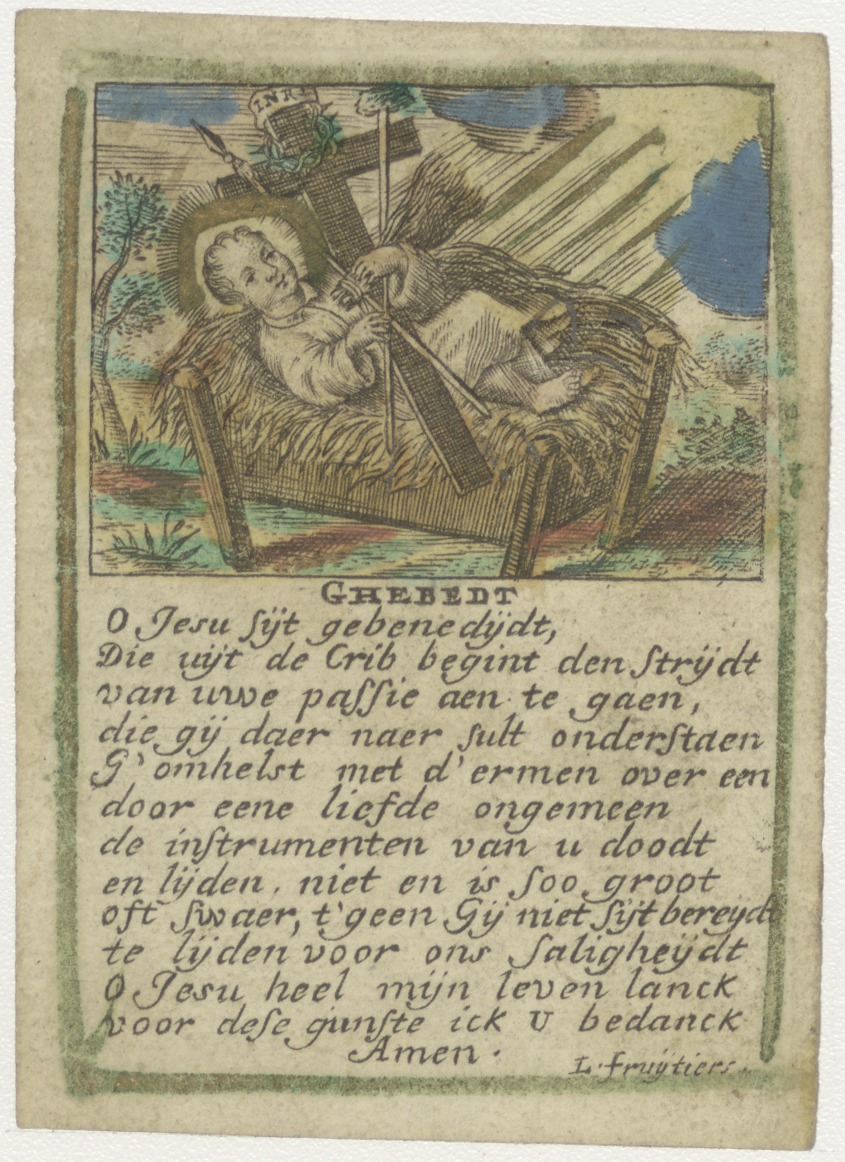 INRI
GHEBEDT
O Jesu ſijt gebenedijdt,
Die uijt de Crib begint den ſtrijdt
van uwe paſſie aen te gaen,
die gij daer naer ſult onderſtaen
G'omhelst met d'ermen over een
door eene liefde ongemeen
de inſtrumenten van u doodt
en lijden, niet en is ſoo groot
oft ſwaer, t'geen Gij niet ſijt bereijdt
te lijden voor ons ſaligheijdt
O Jesu heel mijn leven lanck
voor deſe gunſte ick U bedanck
Amen.
L. fruijtiers.